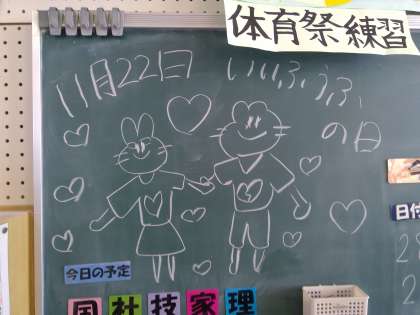 体育祭練習
11月22日 いいふうふ
の日
今日の予定
日付
国 社 技 家 理
2
2